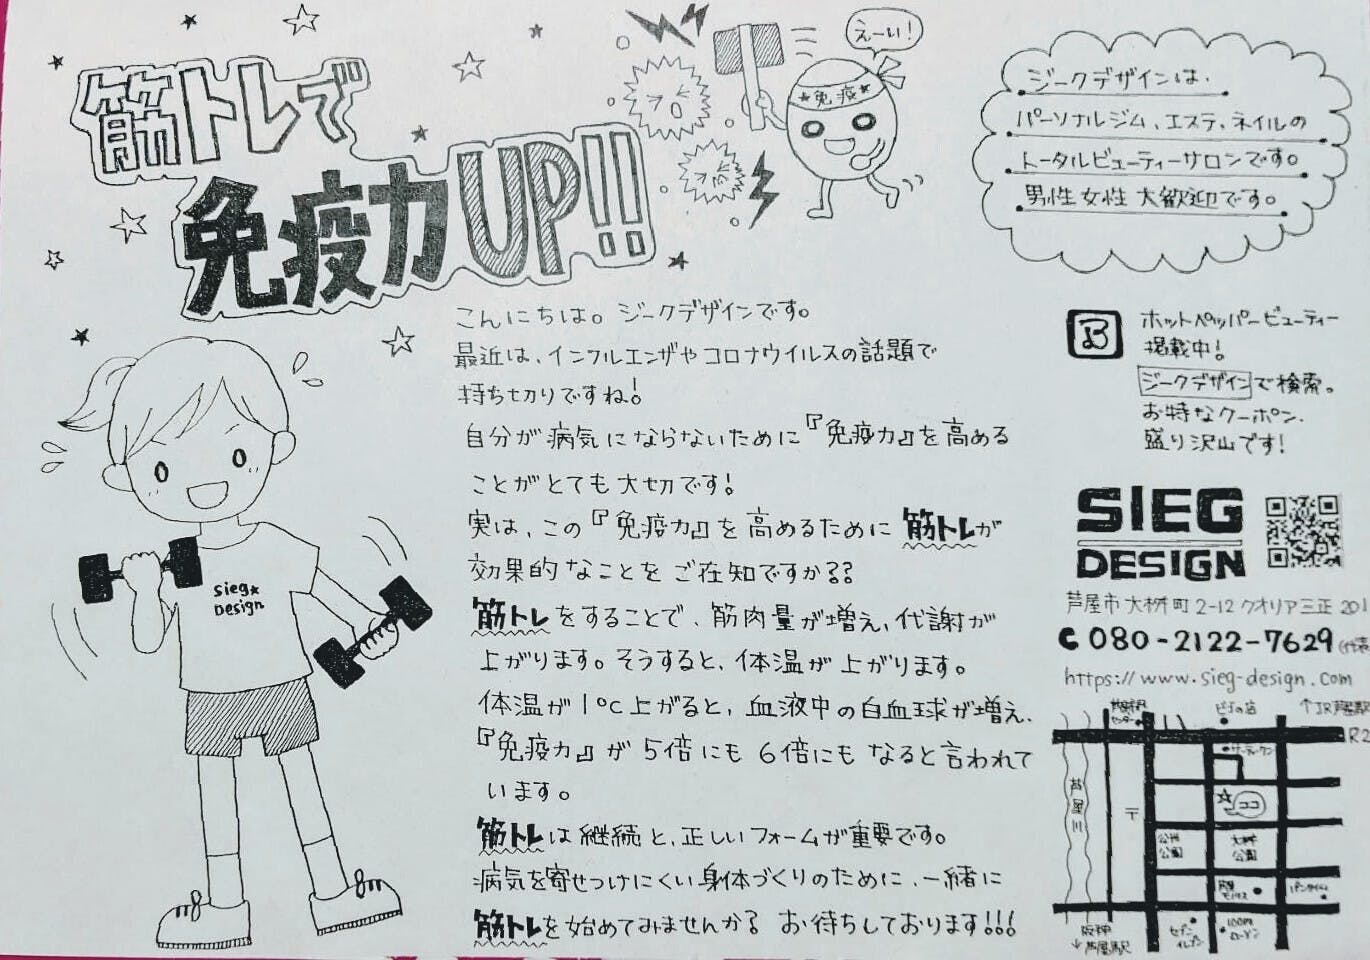 筋トレで
免疫力UP!!
えーい!
★免疫★
ジークデザインは、
パーソナルジム、エステ、ネイルの
トータルビューティーサロンです。
男性女性大歓迎です。
こんにちは。ジークデザインです。
最近は、インフルエンザやコロナウイルスの話題で
持ち切りですね!
自分が病気にならないために『免疫力』を高める
ことがとても大切です!
実は、この『免疫力』を高めるために筋トレが
効果的なことをご存知ですか??
筋トレをすることで、筋肉量が増え、代謝が
上がります。そうすると、体温が上がります。
体温が1℃上がると、血液中の白血球が増え、
『免疫力』が5倍にも6倍にもなると言われて
います。
筋トレは継続と、正しいフォームが重要です。
病気を寄せつけにくい身体づくりのために、一緒に
筋トレを始めてみませんか? お待ちしております!!!
sieg★
Design
B
ホットペッパービューティー
掲載中!
ジークデザインで検索。
お得なクーポン、
盛り沢山です!
SIEG
DESIGN
芦屋市大桝町2-12クオリア三正201
080-2122-7629(代表
https://www.sieg-design.com
センター
↑JR芦屋駅
R2
芦屋川
〒
☆ココ
公光
公園
大桝
公園
阪神
↓芦屋駅
セブン
イレブン
100円
ローソン